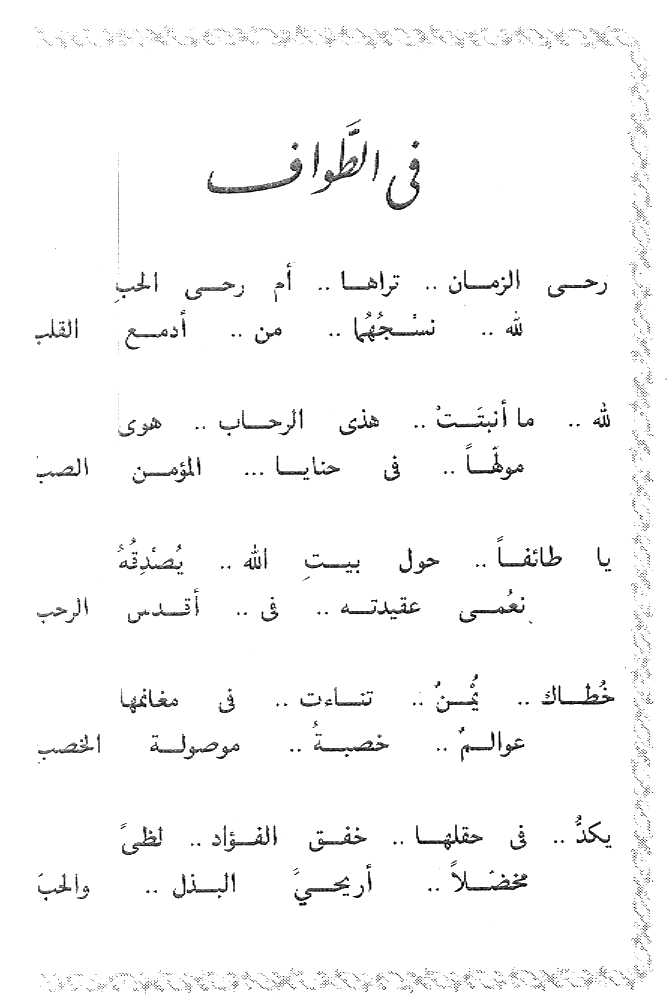 فى الطَّواف
رحى الزمان .. تراها .. أم رحى الحب
لله .. نسْجُهُما .. من .. أدمع القلب
لله .. ما أنبتَتْ .. هذى الرحاب .. هوى
مولّهاً .. فى حنايا ... المؤمن الصبّ
يا طائفاً .. حول بيتِ الله .. يُصْدِقُهُ
نعُمى عقيدته .. فى .. أقدس الرحب
خُطاك .. يُمْنٌ .. تناءت .. فى مغانمها
عوالمٌ .. خصبةُ .. موصولة الخصب
يكدُّ .. فى حقلها .. خفق الفؤاد .. لظىً
مخضلاً .. أريحيَّ البذل .. والحبَ